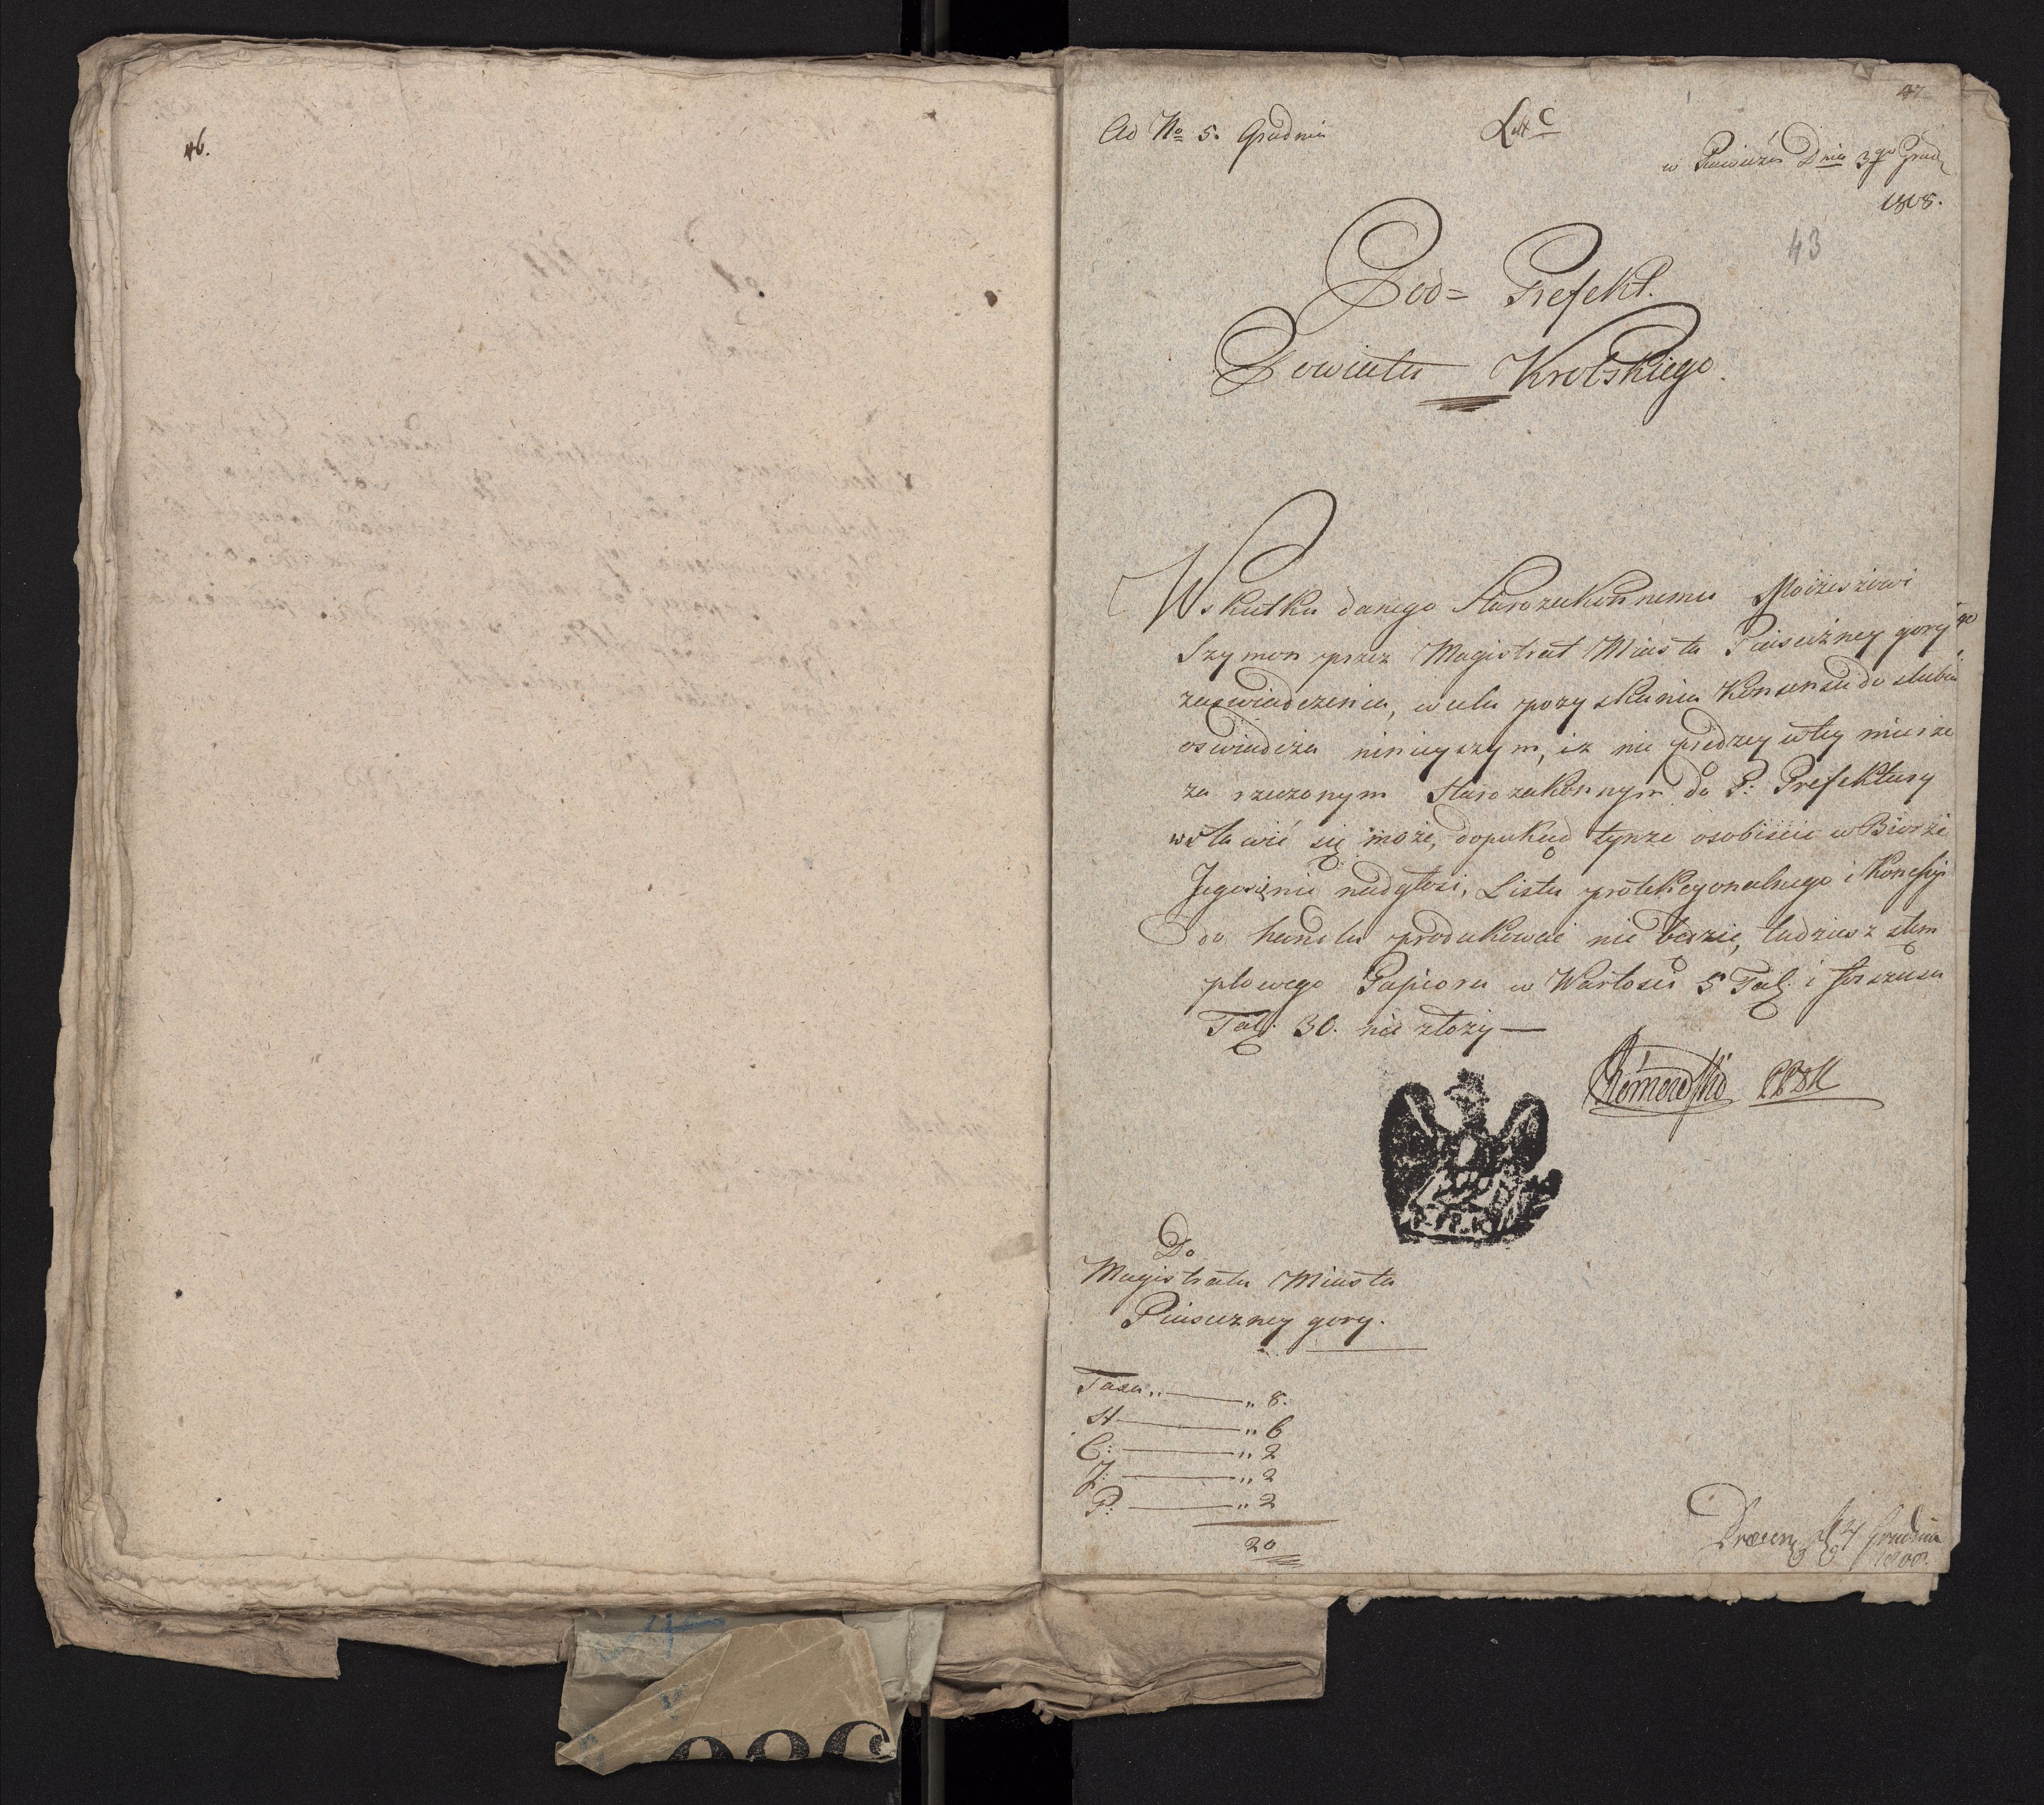 46.
47
Ad No 5. Grudnia
Litt C
w Dnia 3go Grud
1808.
43
Pod= Prefekt.
Powiatu Krobskiego.
Wskutku danego Starozakonnemu Moyżeszowi
Szymon przez Magistrat Miasta Piaseczney gory
zaswiadczenia, wcelu pozyskania Konsensu do slubu
oswiadcza ninieyszym, iz nie prędzey wtey mierze
za rzeczonym Starozakonnym do P: Prefektury
wstawić się może, dopukąd tynze osobiscie w Biorze
Jego się nie nadgłosi, Listu protekcyonalnego i Koncessyi
do handlu produkować nie będzie, tudziesz stem
plowego Papioru w Wartosci 5 Tal: i
Tal: 30. nie złoży —
PPPK
Do
Magistratu Miasta
Piaseczney gory.
Taxa „ — „ 8.
St — „ 6
C: — „ 2
J: — „ 2
P: — „ 2
20
Grudnia
1808.
086